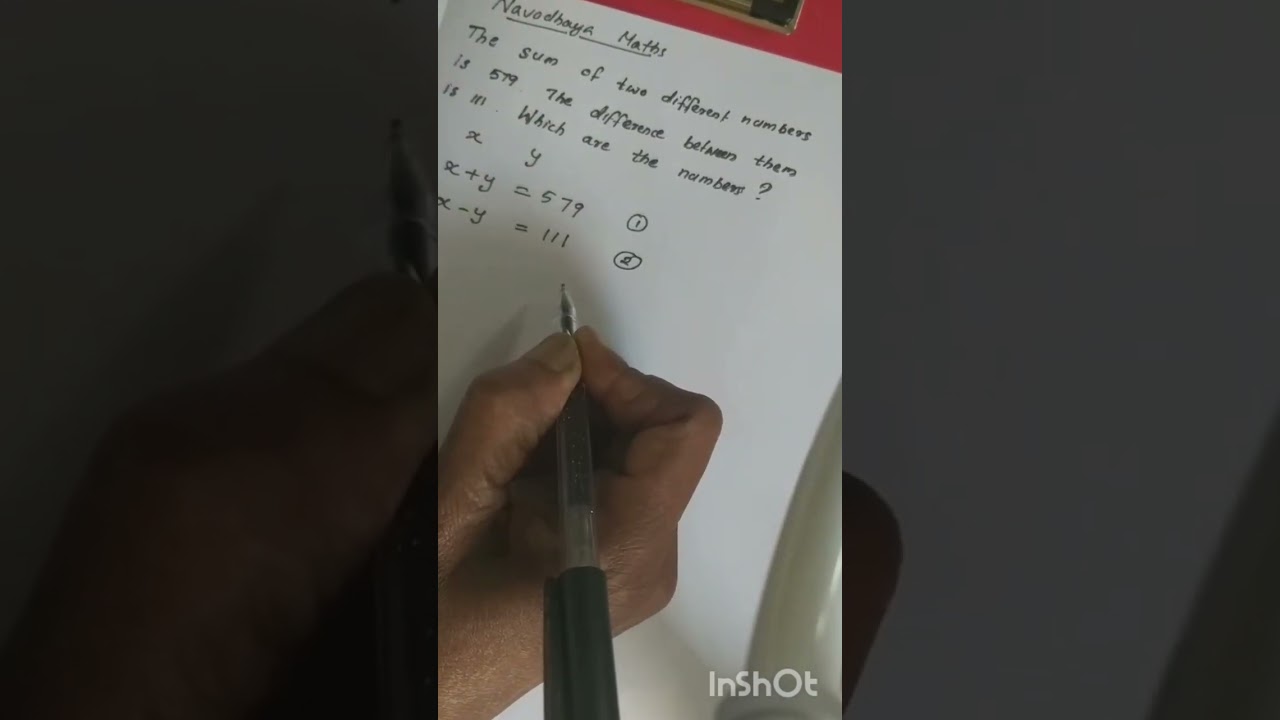 Navodhaya Maths
The sum of two different numbers
is 579. The difference between them
is 111. Which are the numbers?
x y
x+y = 579 ①
x-y = 111 ②
InShOt